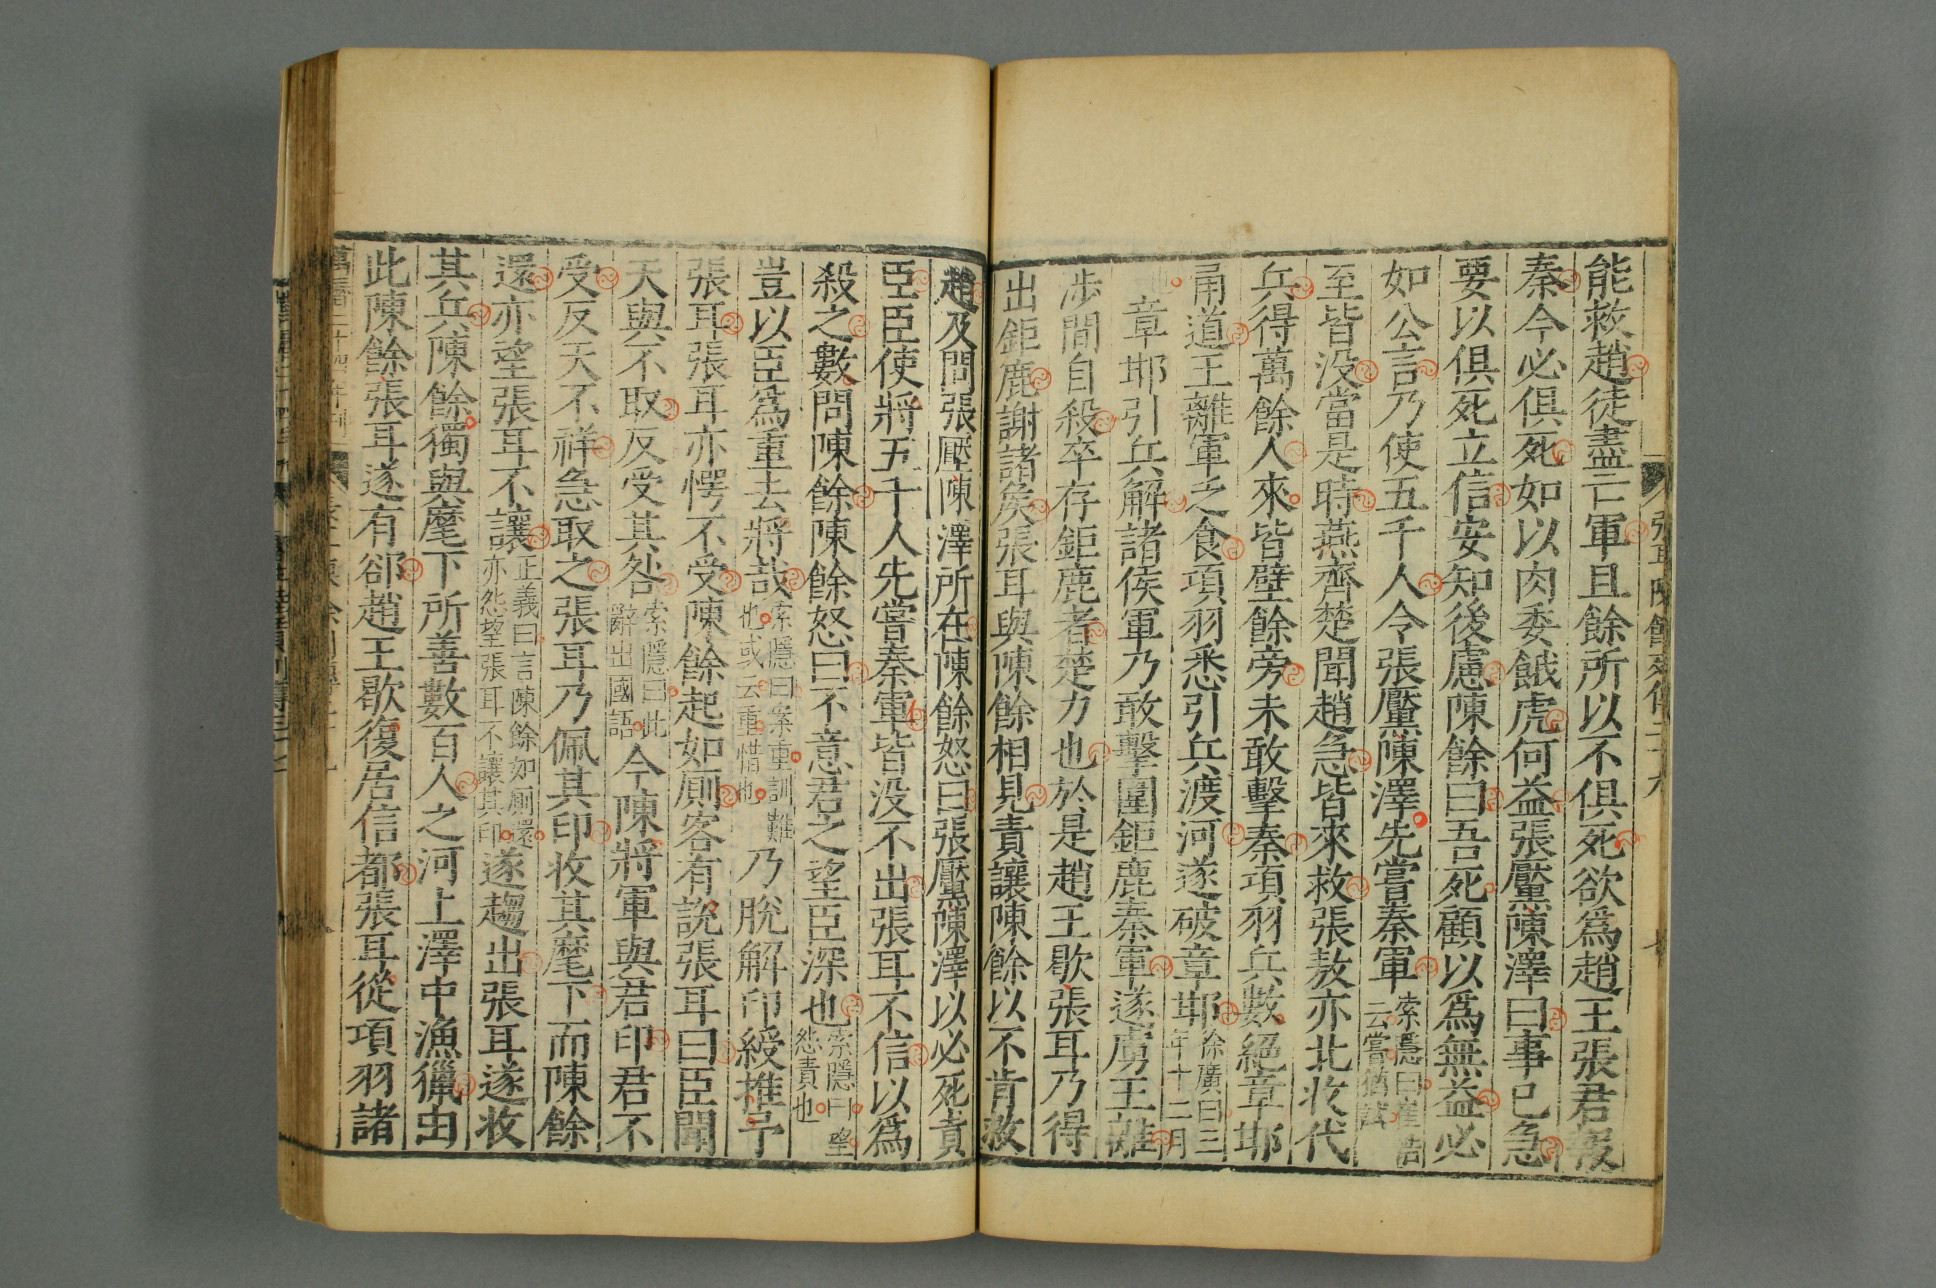 能救趙徒盡亡軍且餘所以不俱死欲爲趙王張君報
秦今必俱死如以肉委餓虎何益張黶陳澤曰事已急
要以俱死立信安知後慮陳餘曰吾死顧以爲無益必
如公言乃使五千人令張黶陳澤先嘗秦軍索隱曰崔浩云嘗猶試
至皆没當是時燕齊楚聞趙急皆來救張敖亦北收代
兵得萬餘人來皆壁餘旁未敢擊秦項羽兵數絕章邯
甬道王離軍乏食項羽悉引兵渡河遂破章邯徐廣曰三年十二月
章邯引兵解諸侯軍乃敢擊圍鉅鹿秦軍遂虜王離
涉間自殺卒存鉅鹿者楚力也於是趙王歇張耳乃得
出鉅鹿謝諸侯張耳與陳餘相見責讓陳餘以不肯救
趙及問張黶陳澤所在陳餘怒曰張黶陳澤以必死責
臣臣使將五千人先嘗秦軍皆没不出張耳不信以爲
殺之數問陳餘陳餘怒曰不意君之望臣深也索隱曰望怨責也
豈以臣爲重去將哉索隱曰案重訓難也或云重惜也乃脫解印綬推予
張耳張耳亦愕不受陳餘起如廁客有說張耳曰臣聞
天與不取反受其咎索隱曰此辭出國語今陳將軍與君印君不
受反天不祥急取之張耳乃佩其印收其麾下而陳餘
還亦望張耳不讓正義曰言陳餘如廁還亦怨望張耳不讓其印遂趨出張耳遂收
其兵陳餘獨與麾下所善數百人之河上澤中漁獵由
此陳餘張耳遂有郤趙王歇復居信都張耳從項羽諸